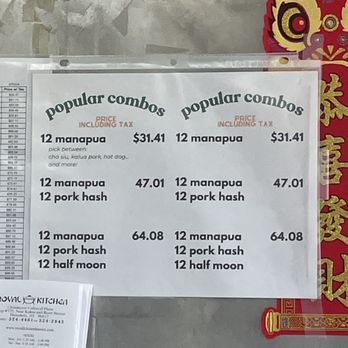 popular combos
PRICE
INCLUDING TAX
12 manapua $31.41
pick between:
cha siu, kalua pork, hot dog...
and more!
12 manapua 47.01
12 pork hash
12 manapua 64.08
12 pork hash
12 half moon
popular combos
PRICE
INCLUDING TAX
12 manapua $31.41
12 manapua 47.01
12 pork hash
12 manapua 64.08
12 pork hash
12 half moon
恭
喜
發
財
ROYAL KITCHEN